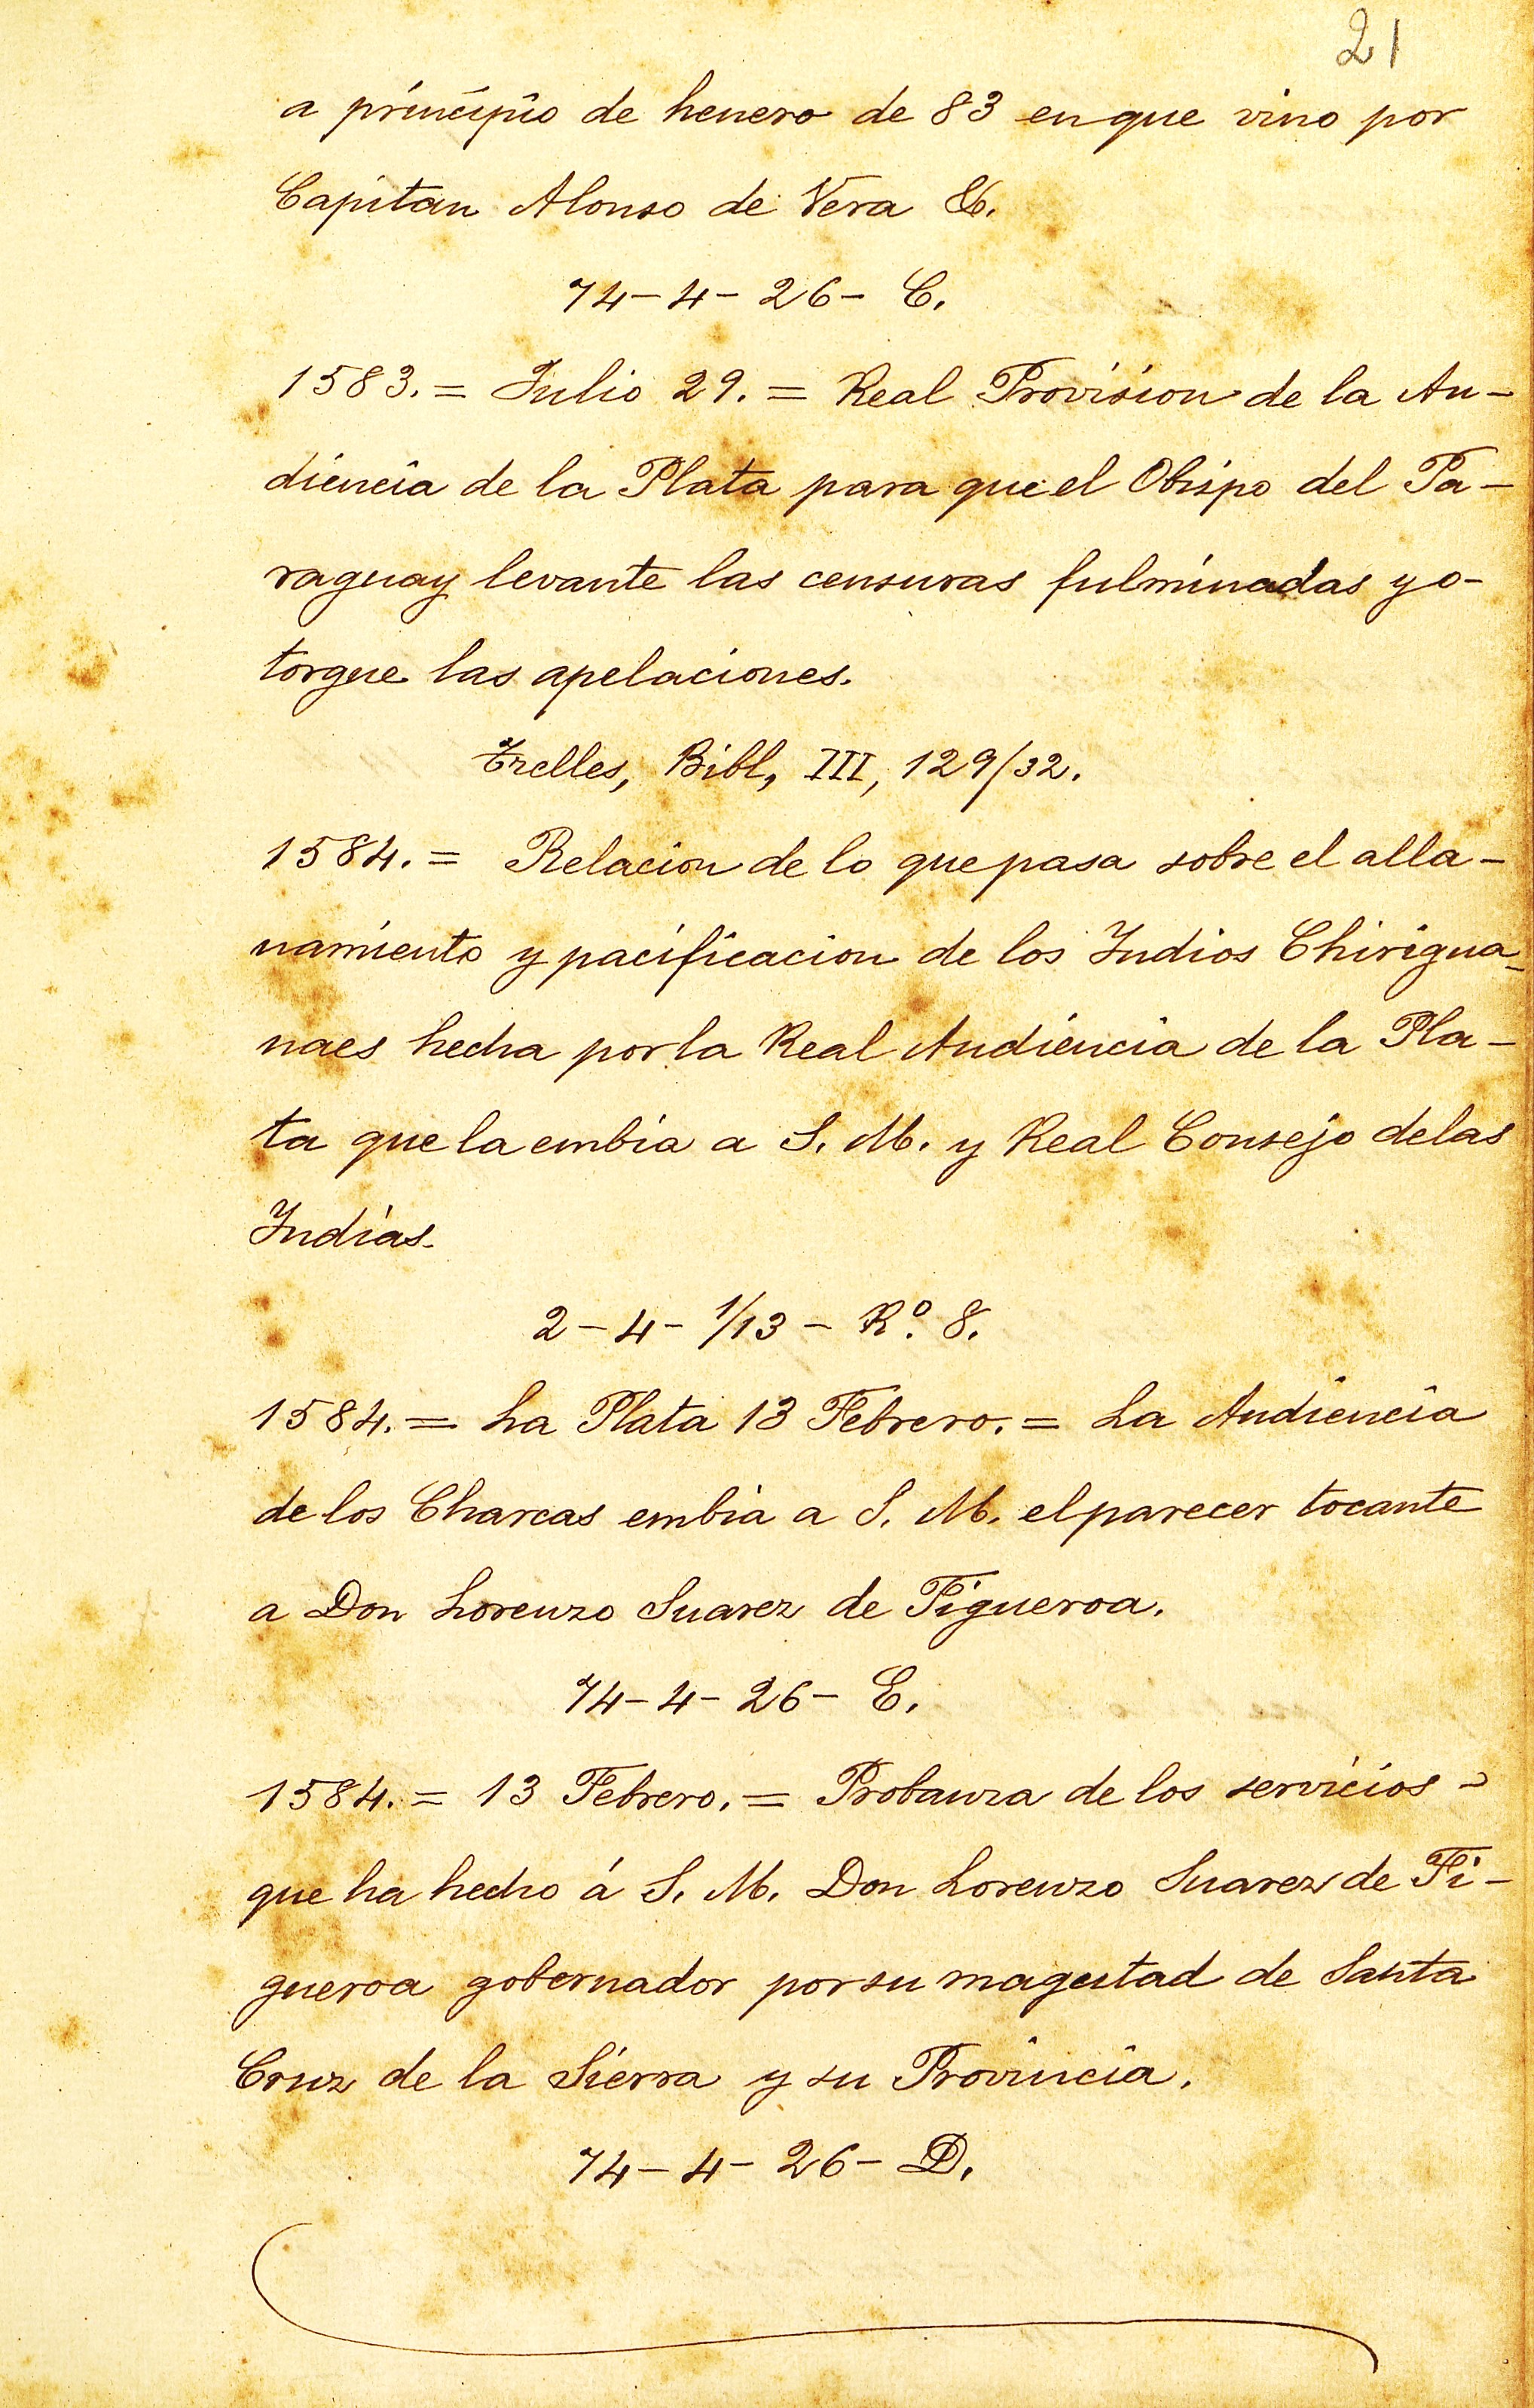 21
a principio de henero de 83 en que vino por
Capitan Alonso de Vera &.
74-4-26- C.
1583.= Julio 29.= Real Provision de la Au-
diencia de la Plata para que el Obispo del Pa-
raguay levante las censuras fulminadas y o-
torgue las apelaciones.
Trelles, Bibl, III, 129/32.
1584.= Relacion de lo que pasa sobre el alla-
namiento y pacificacion de los Indios Chirigua-
naes hecha por la Real Audiencia de la Pla-
ta que la embia a S. M. y Real Consejo de las
Indias.
2-4-1/13- Rº. 8.
1584.= La Plata 13 Febrero.= La Audiencia
de los Charcas embia a S. M. el parecer tocante
a Don Lorenzo Suarez de Figueroa.
74-4-26- E.
1584.= 13 Febrero.= Probanza de los servicios -
que ha hecho á S. M. Don Lorenzo Suarez de Fi-
gueroa gobernador por su magestad de Santa
Cruz de la Sierra y su Provincia.
74-4-26- D.